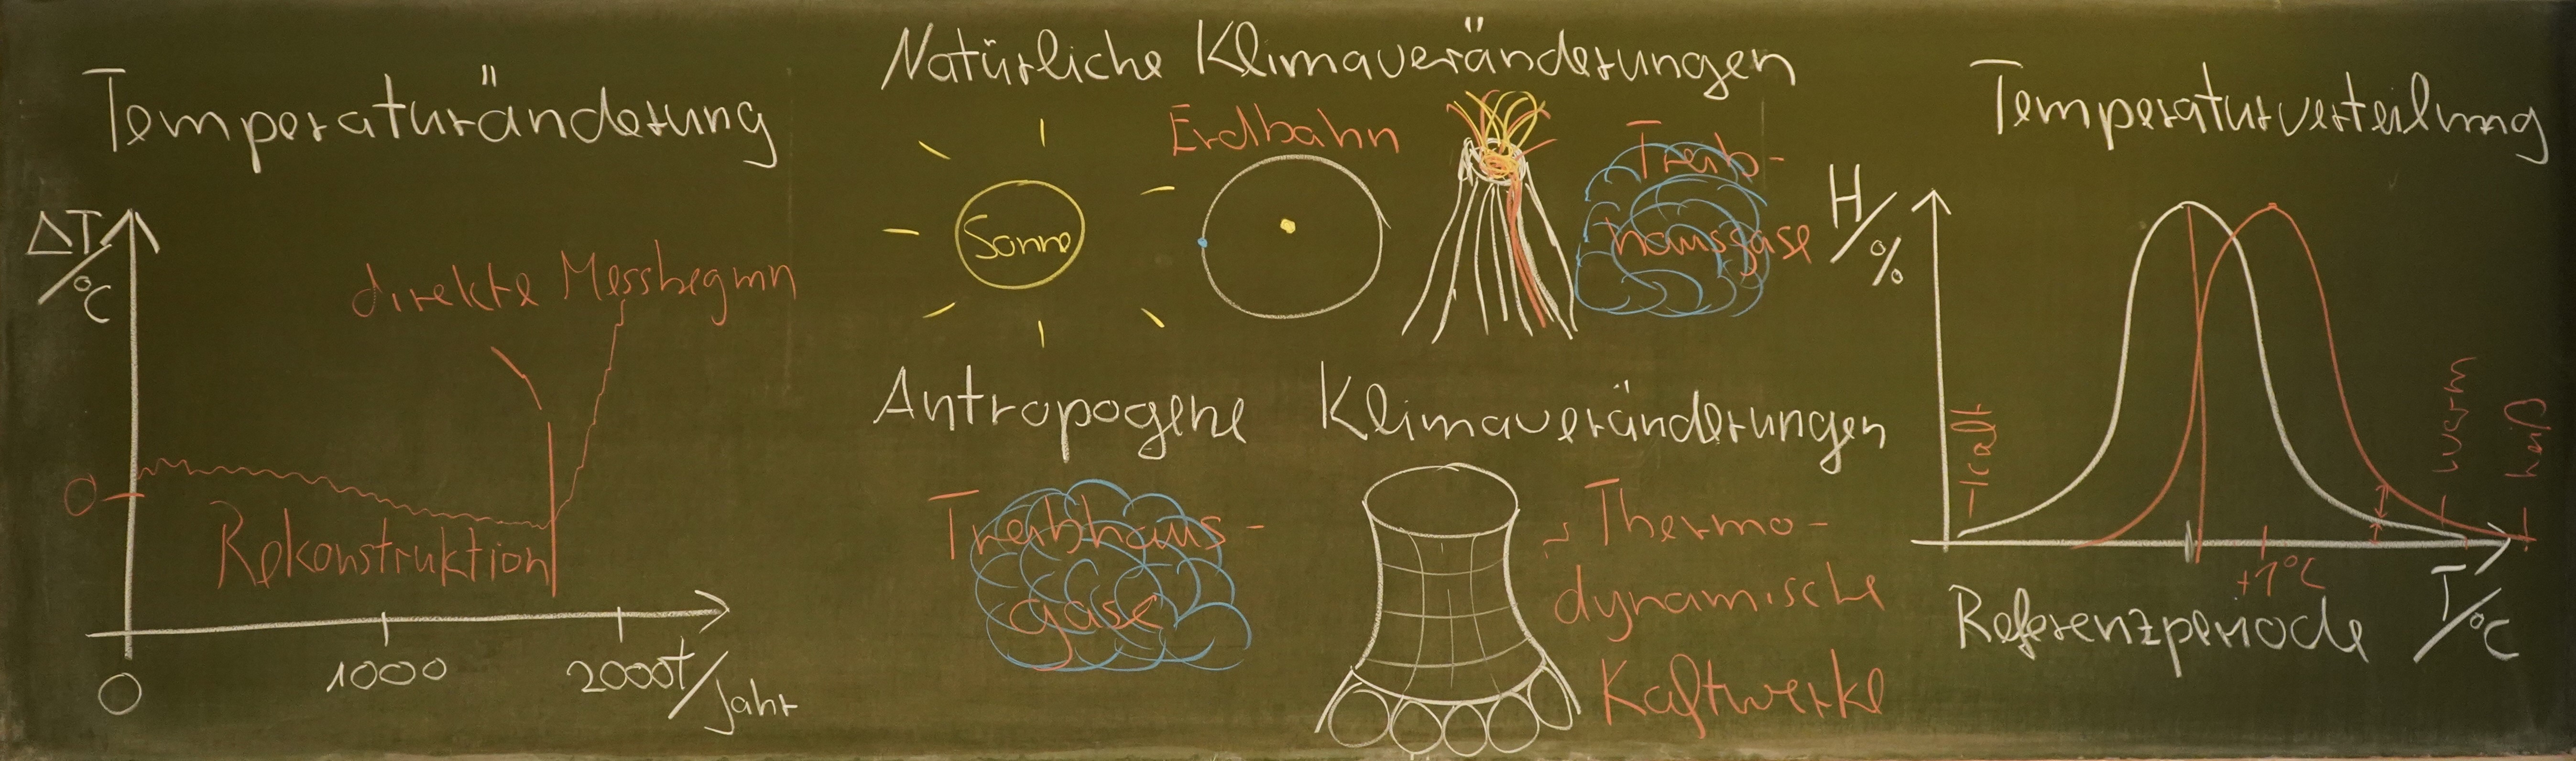 Temperaturänderung
ΔT/°C
direkte Messbeginn
0
Rekonstruktion
0
1000
2000
t/Jahr
Natürliche Klimaveränderungen
Sonne
Erdbahn
Treib-
hausgase
Antropogene Klimaveränderungen
Treibhaus-
gase
Thermo-
dynamische
Kaftwerke
Temperaturverteilung
H/%
kalt
warm
heiß
+1°C
Referenzperiode
T/°C